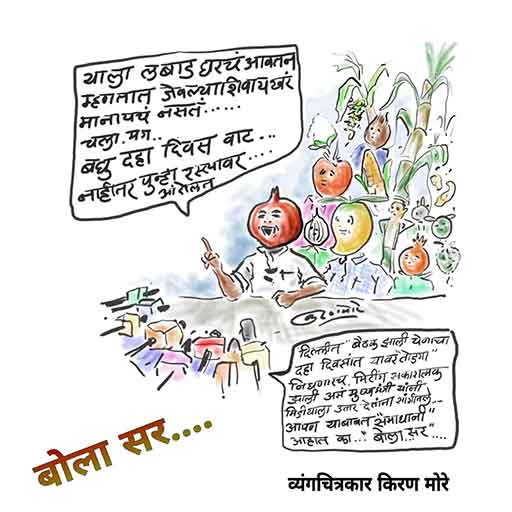 याला लबाड घरचं आवतन
म्हणतात जेवल्याशिवाय खरं
मानायचं नसतं......
चला.. मग..
बघु दहा दिवस वाट...
नाहीतर पुन्हा रस्त्यावर....
आंदोलन
दिल्लीत "बैठक झाली येणाऱ्या
दहा दिवसांत यावर तोडगा"
निघणारच, मिटींग सकारात्मक
झाली असं मुख्यमंत्री यांनी
मिडीयाला उत्तर देतांना सांगितले...
आपण याबाबत "समाधानी"
आहात का.." बोला..सर"....
बोला सर....
व्यंगचित्रकार किरण मोरे